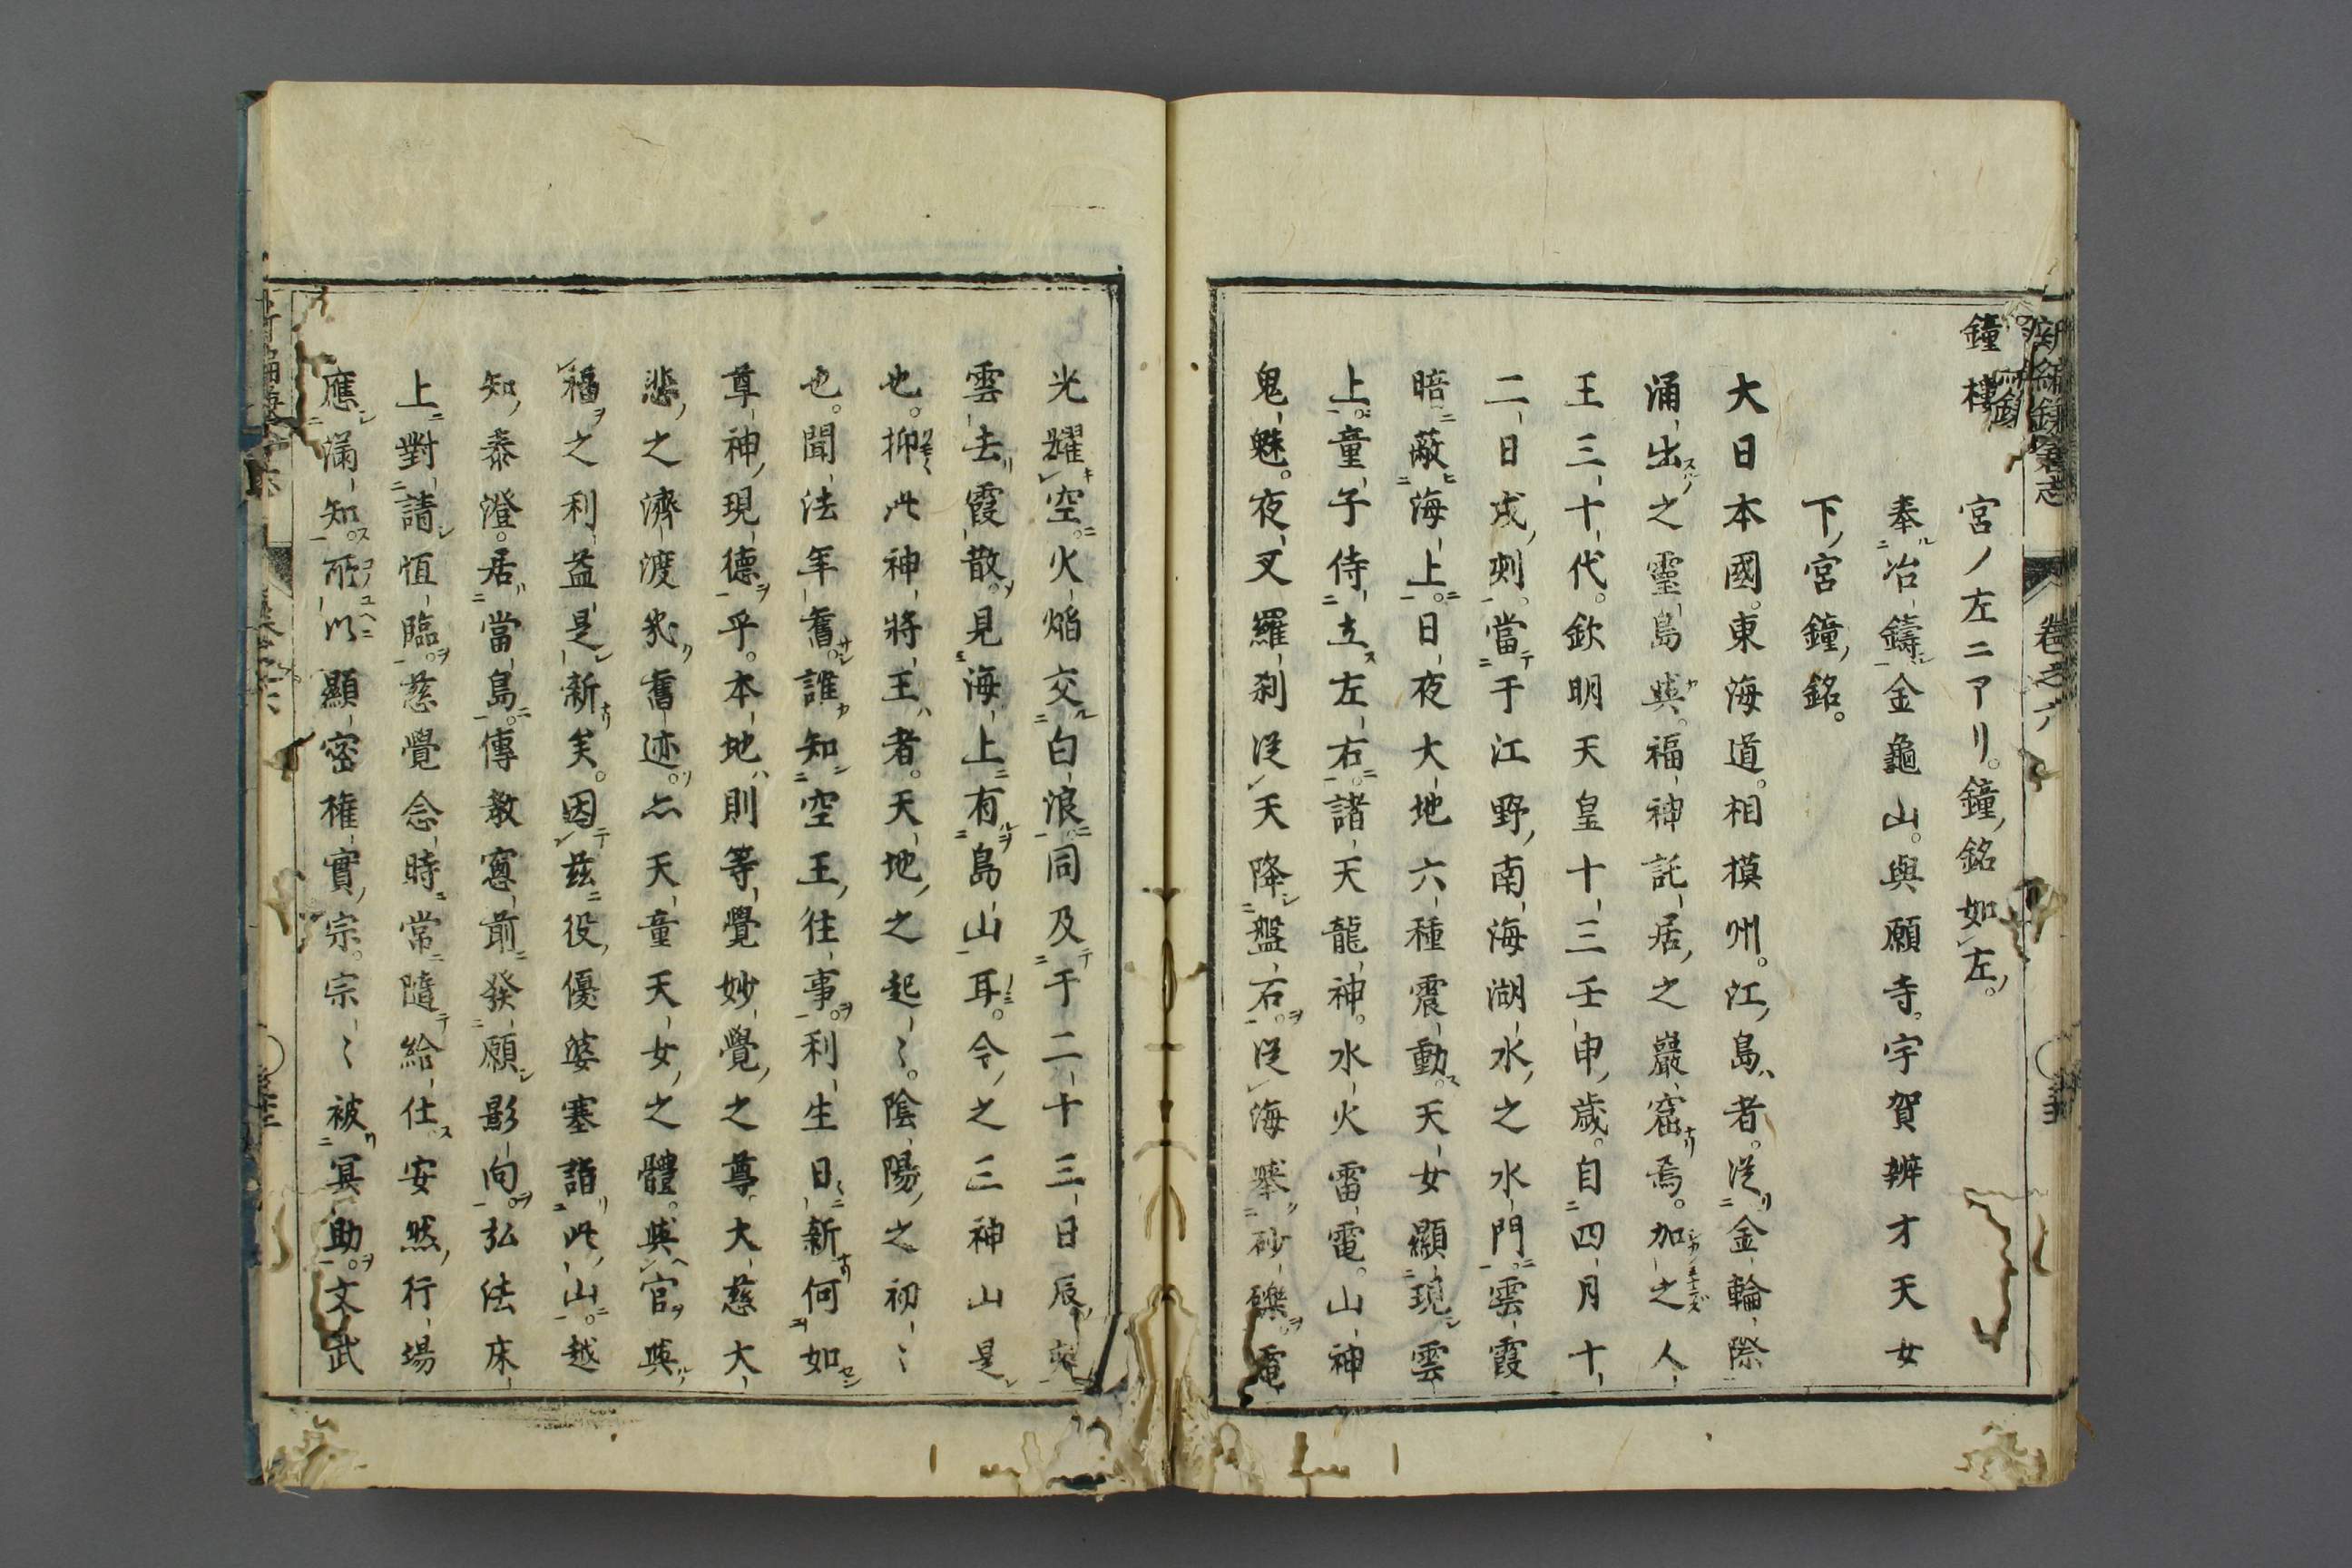 新編鎌倉志 卷之六
鐘樓 宮ノ左ニアリ。鐘ノ銘如左。
奉冶鑄金龜山。與願寺。宇賀辨才天女
下ノ宮鐘ノ銘。
大日本國。東海道。相模州。江ノ島者。從金輪際
涌出之靈島與。福神託居之巖窟焉。加之人
王三十代。欽明天皇十三壬申歲。自四月十
二日戌刻。當于江野南海湖水之水門。雲霞
暗蔽海上。日夜大地六種震動。天女顯現雲
上。童子侍立左右。諸天龍神。水火雷電。山神
鬼魅。夜叉羅刹從天降盤石。從海擧砂礫。電
光耀空。火焰交白浪。同及于二十三日辰
雲去霞散。見海上有島山耳。今之三神山是
也。抑此神將王者。天地之起〻。陰陽之初〻
也。聞法年舊。誰知空王往事。利生日新何如
尊神現德乎。本地則等覺妙覺之尊大慈大
悲之濟渡舊迹。亦天童天女之體。與官與
福之利益是新矣。因茲役優婆塞詣此山。越
知泰澄。居當島。傳教窓前發願影向。弘法床
上對請恒臨。慈覺念時常隨給仕。安然行場
應滿知。所以顯密權實宗。宗〻被冥助。文武